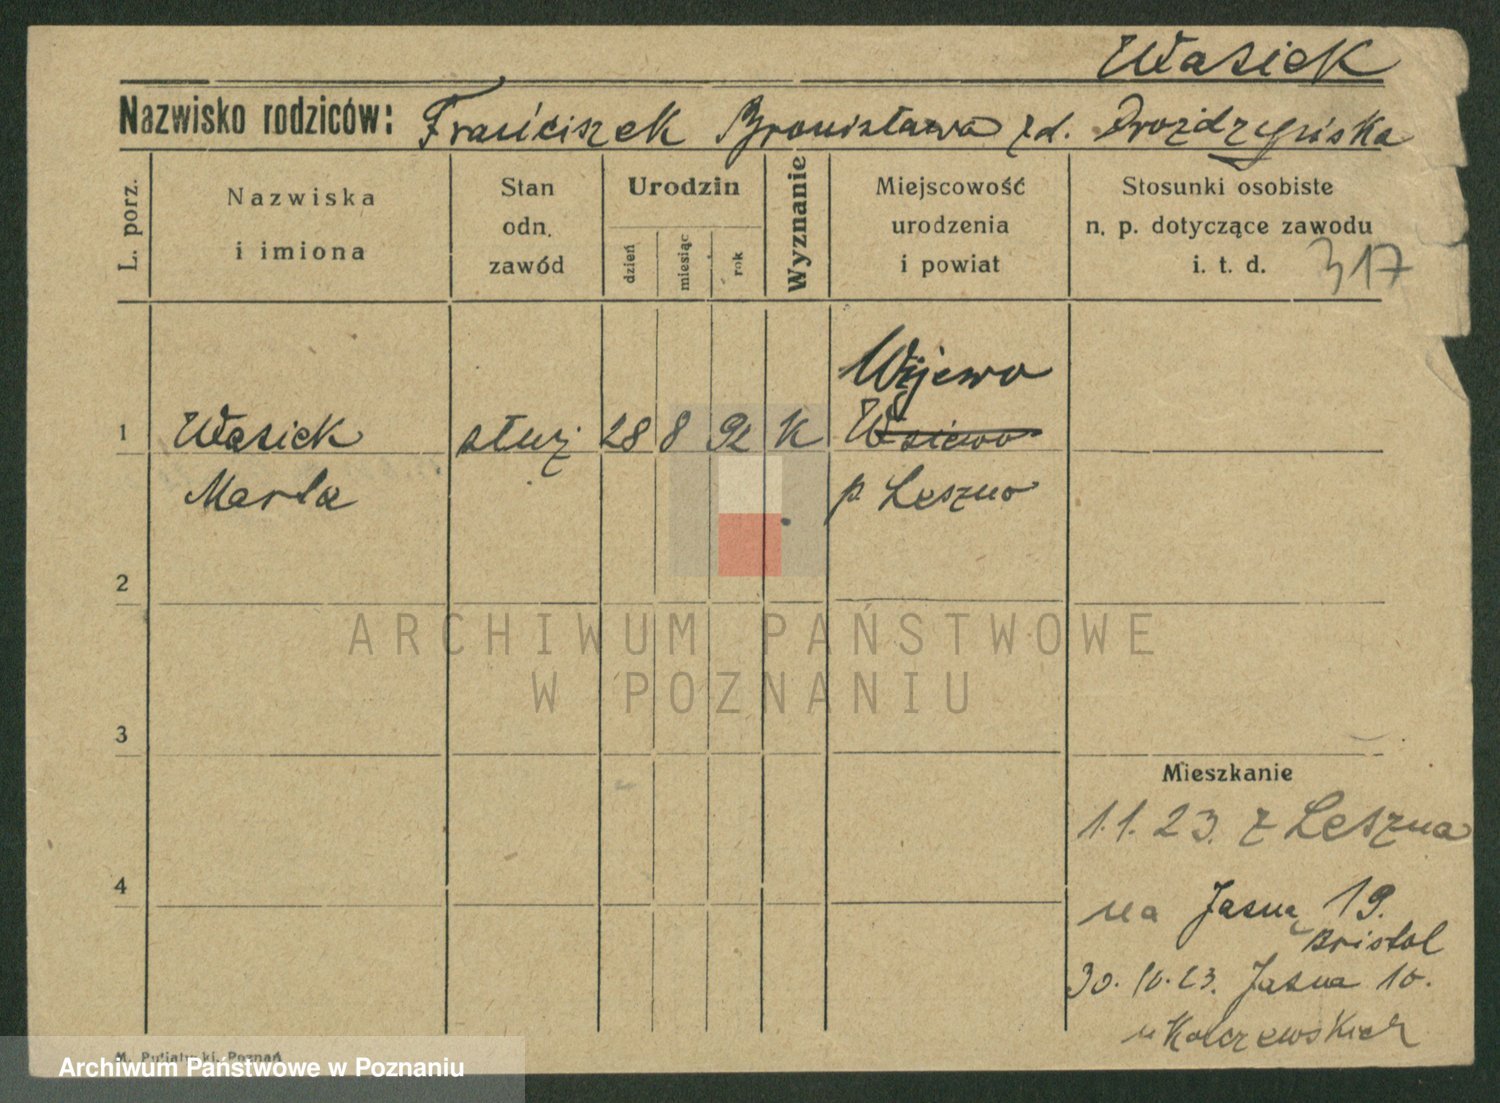 Wasiek
Nazwisko rodziców: Franciszek Bronisława zd. Drożdżyńska
L. porz.
Nazwiska
i imiona
Stan
odn.
zawód
Urodzin
dzień
miesiąc
rok
Wyznanie
Miejscowość
urodzenia
i powiat
Stosunki osobiste
n. p. dotyczące zawodu
i. t. d.
317
Wijewo
1 Wasiek służ 28 8 92 K
Marta p. Leszno
2
ARCHIWUM PAŃSTWOWE
W POZNANIU
3
Mieszkanie
1.1.23. z Leszna
4
na Jasną 19.
Bristol
30.10.23. Jasna 10.
u
M. Putiatycki, Poznań
Archiwum Państwowe w Poznaniu